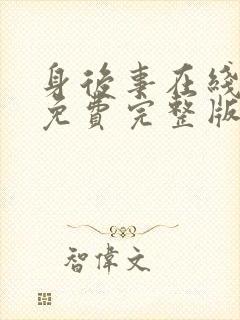 身後事在綫
免費完整版
智偉文